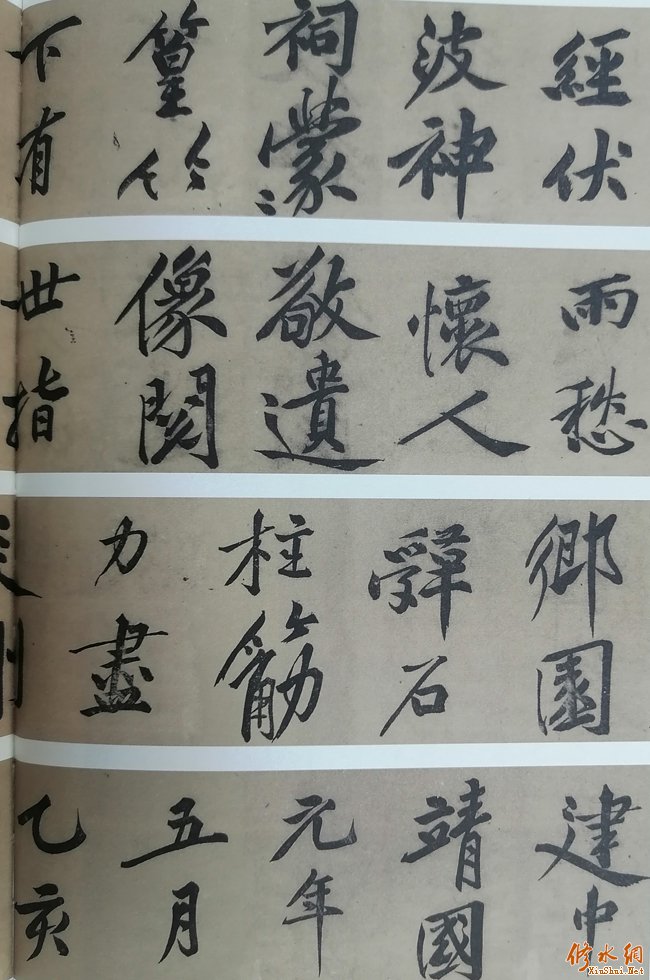 經伏
波神
祠蒙〻
篁竹
下有
雨愁
懷人
敬遺
像閱
世指
鄉園
辤石
柱筋
力盡
建中
靖國
元年
五月
乙亥
修水網
XinShui.Net